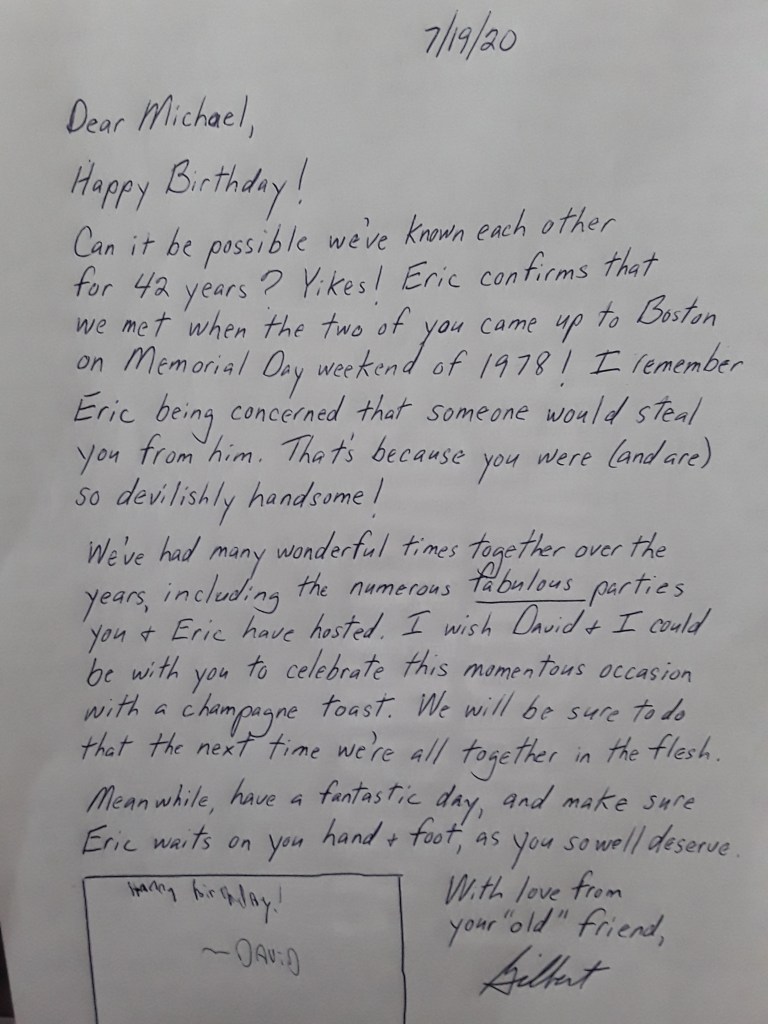 7/19/20
Dear Michael,
Happy Birthday!
Can it be possible we've known each other
for 42 years? Yikes! Eric confirms that
we met when the two of you came up to Boston
on Memorial Day weekend of 1978! I remember
Eric being concerned that someone would steal
you from him. That's because you were (and are)
so devilishly handsome!
We've had many wonderful times together over the
years, including the numerous fabulous parties
you + Eric have hosted. I wish David + I could
be with you to celebrate this momentous occasion
with a champagne toast. We will be sure to do
that the next time we're all together in the flesh.
Meanwhile, have a fantastic day, and make sure
Eric waits on you hand + foot, as you so well deserve.
Happy birthday!
~DAViD
With love from
your "old" friend,
Gilbert